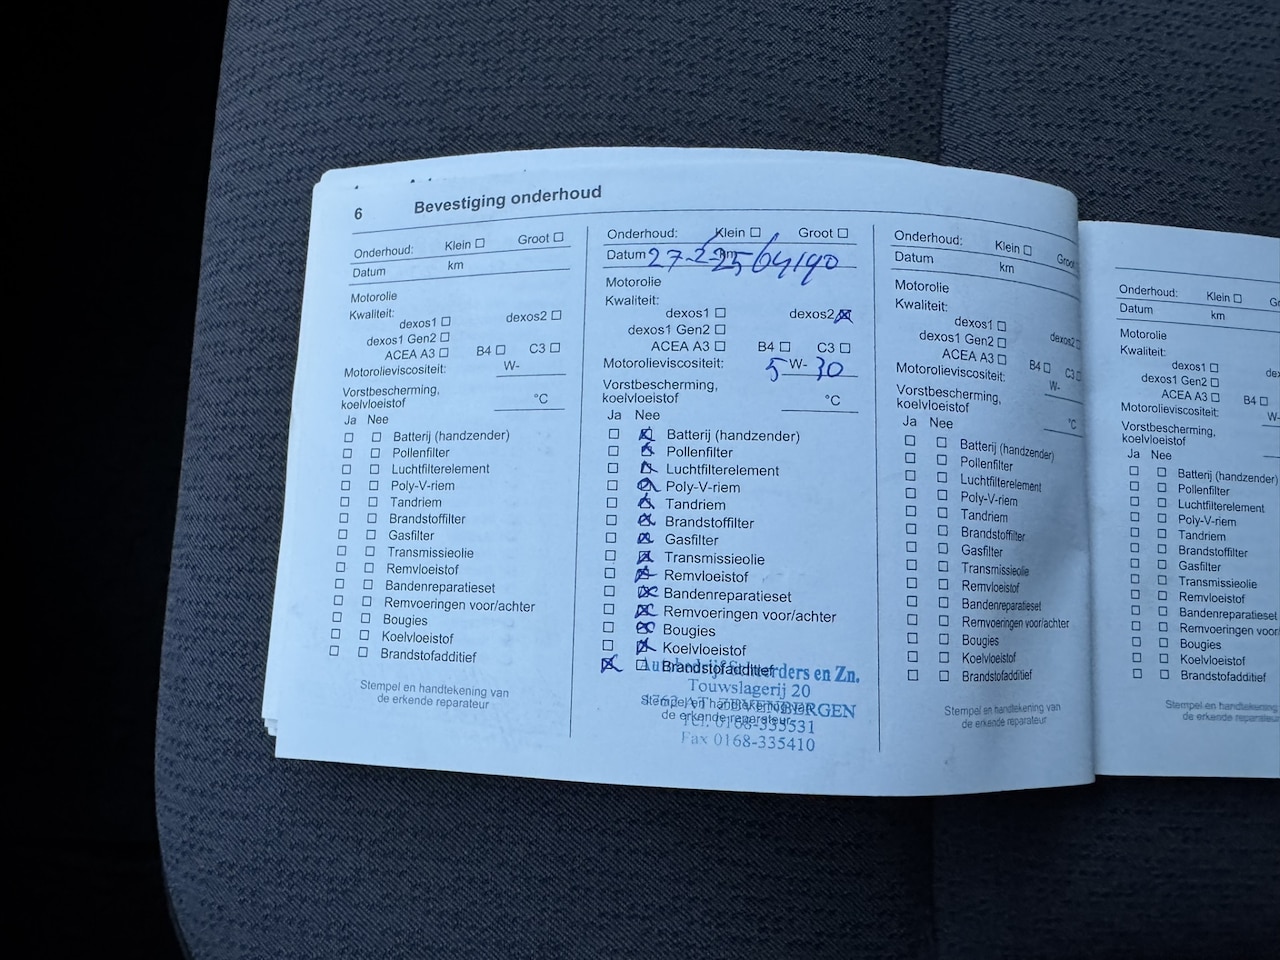 6 Bevestiging onderhoud
Onderhoud: Klein ☐ Groot ☐
Datum km
Motorolie
Kwaliteit:
dexos1 ☐ dexos2 ☐
dexos1 Gen2 ☐
ACEA A3 ☐ B4 ☐ C3 ☐
Motorolieviscositeit: W-
Vorstbescherming,
koelvloeistof °C
Ja Nee
☐ ☐ Batterij (handzender)
☐ ☐ Pollenfilter
☐ ☐ Luchtfilterelement
☐ ☐ Poly-V-riem
☐ ☐ Tandriem
☐ ☐ Brandstoffilter
☐ ☐ Gasfilter
☐ ☐ Transmissieolie
☐ ☐ Remvloeistof
☐ ☐ Bandenreparatieset
☐ ☐ Remvoeringen voor/achter
☐ ☐ Bougies
☐ ☐ Koelvloeistof
☐ ☐ Brandstofadditief
Stempel en handtekening van
de erkende reparateur
Onderhoud: Klein ☐ Groot ☐
Datum 27-2-25 km 64190
Motorolie
Kwaliteit:
dexos1 ☐ dexos2 ☒
dexos1 Gen2 ☐
ACEA A3 ☐ B4 ☐ C3 ☐
Motorolieviscositeit: 5 W- 30
Vorstbescherming,
koelvloeistof °C
Ja Nee
☐ ☒ Batterij (handzender)
☐ ☒ Pollenfilter
☐ ☒ Luchtfilterelement
☐ ☒ Poly-V-riem
☐ ☒ Tandriem
☐ ☒ Brandstoffilter
☐ ☒ Gasfilter
☐ ☒ Transmissieolie
☐ ☒ Remvloeistof
☐ ☒ Bandenreparatieset
☐ ☒ Remvoeringen voor/achter
☐ ☒ Bougies
☐ ☒ Koelvloeistof
☒ ☐ Brandstofadditief
en Zn.
Touwslagerij 20
ZEVENBERGEN
Stempel en handtekening van
de erkende reparateur
Tel. 0168-335531
Fax 0168-335410
Onderhoud: Klein ☐ Groot
Datum km
Motorolie
Kwaliteit:
dexos1 ☐ dexos2 ☐
dexos1 Gen2 ☐
ACEA A3 ☐ B4 ☐ C3 ☐
Motorolieviscositeit: W-
Vorstbescherming,
koelvloeistof °C
Ja Nee
☐ ☐ Batterij (handzender)
☐ ☐ Pollenfilter
☐ ☐ Luchtfilterelement
☐ ☐ Poly-V-riem
☐ ☐ Tandriem
☐ ☐ Brandstoffilter
☐ ☐ Gasfilter
☐ ☐ Transmissieolie
☐ ☐ Remvloeistof
☐ ☐ Bandenreparatieset
☐ ☐ Remvoeringen voor/achter
☐ ☐ Bougies
☐ ☐ Koelvloeistof
☐ ☐ Brandstofadditief
Stempel en handtekening van
de erkende reparateur
Onderhoud: Klein ☐ Gr
Datum km
Motorolie
Kwaliteit:
dexos1 ☐ de
dexos1 Gen2 ☐
ACEA A3 ☐ B4 ☐
Motorolieviscositeit: W-
Vorstbescherming,
koelvloeistof
Ja Nee
☐ ☐ Batterij (handzender)
☐ ☐ Pollenfilter
☐ ☐ Luchtfilterelement
☐ ☐ Poly-V-riem
☐ ☐ Tandriem
☐ ☐ Brandstoffilter
☐ ☐ Gasfilter
☐ ☐ Transmissieolie
☐ ☐ Remvloeistof
☐ ☐ Bandenreparatieset
☐ ☐ Remvoeringen voor
☐ ☐ Bougies
☐ ☐ Koelvloeistof
☐ ☐ Brandstofadditief
Stempel en handtekening
de erkende reparateur